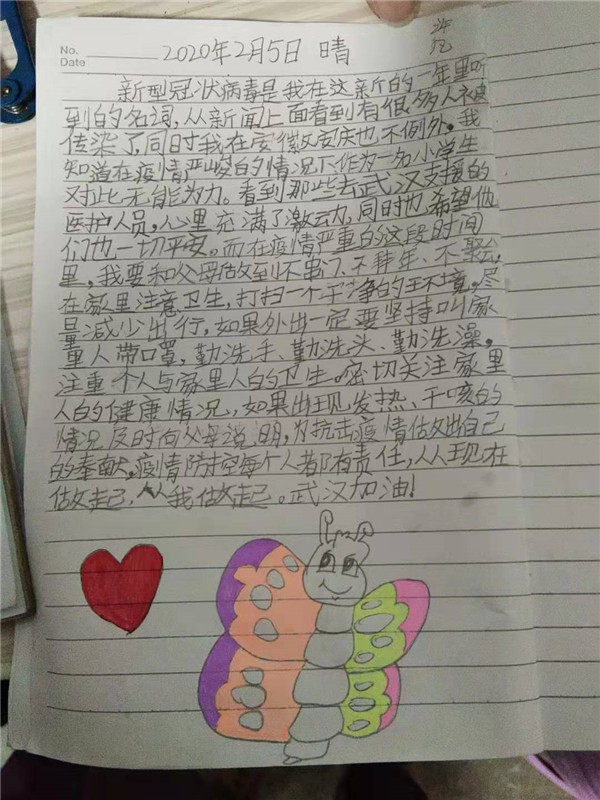 No.
Date
2020年2月5日 晴
新型冠状病毒是我在这新的一年里听
到的名词,从新闻上面看到有很多人被
传染了,同时我在安徽安庆也不例外。我
知道在疫情严峻的情况下作为一名小学生
对此无能为力。看到那些去武汉支援的
医护人员,心里充满了激动,同时也希望他
们也一切平安。而在疫情严重的这段时间
里,我要和父母做到不串门、不拜年、不聚会,
在家里注意卫生,打扫一个干净的环境。尽
量减少出行,如果外出一定要坚持叫家
里人带口罩,勤洗手、勤洗头、勤洗澡。
注重个人与家里人的卫生。密切关注家里
人的健康情况,如果出现发热、干咳的
情况及时向父母说明,为抗击疫情做出自己
的奉献。疫情防控每个人都有责任,从现在
做起,从我做起。武汉加油!